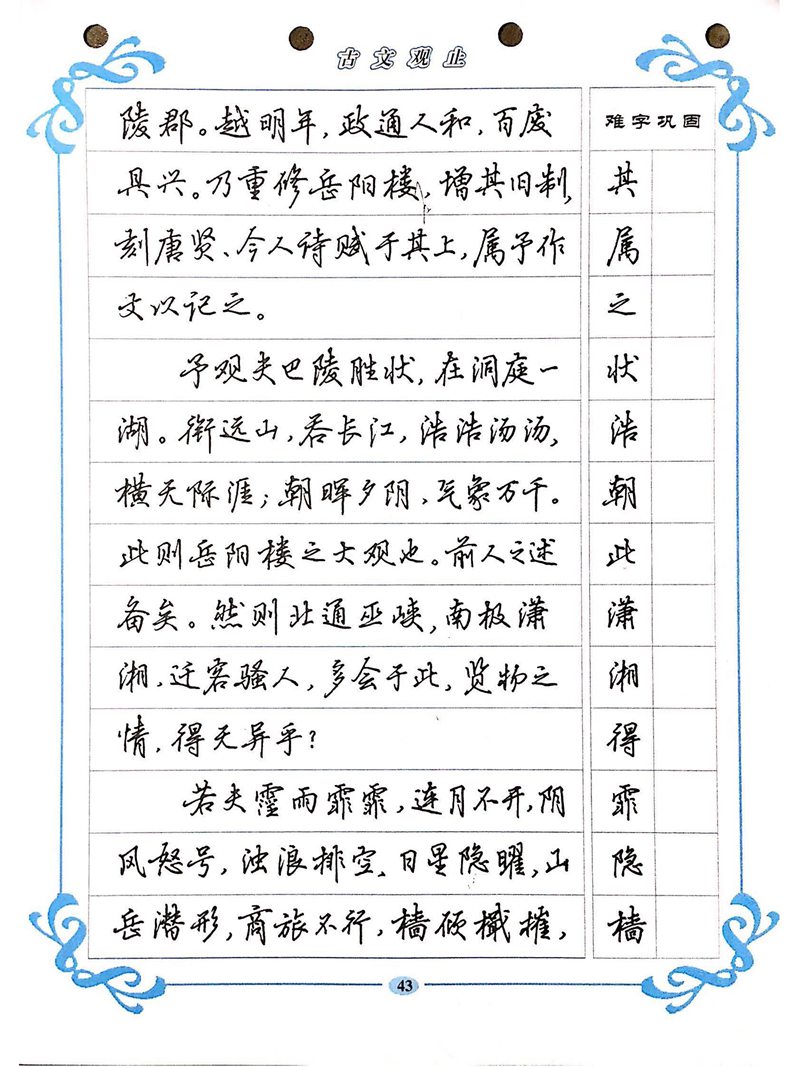 古文观止
陵郡。越明年，政通人和，百废
具兴。乃重修岳阳楼，增其旧制，
刻唐贤、今人诗赋于其上，属予作
文以记之。
予观夫巴陵胜状，在洞庭一
湖。衔远山，吞长江，浩浩汤汤，
横无际涯；朝晖夕阴，气象万千。
此则岳阳楼之大观也。前人之述
备矣。然则北通巫峡，南极潇
湘，迁客骚人，多会于此，览物之
情，得无异乎？
若夫霪雨霏霏，连月不开，阴
风怒号，浊浪排空、日星隐曜，山
岳潜形，商旅不行，樯倾楫摧，
难字巩固
其
属
之
状
浩
朝
此
潇
湘
得
霏
隐
樯
43